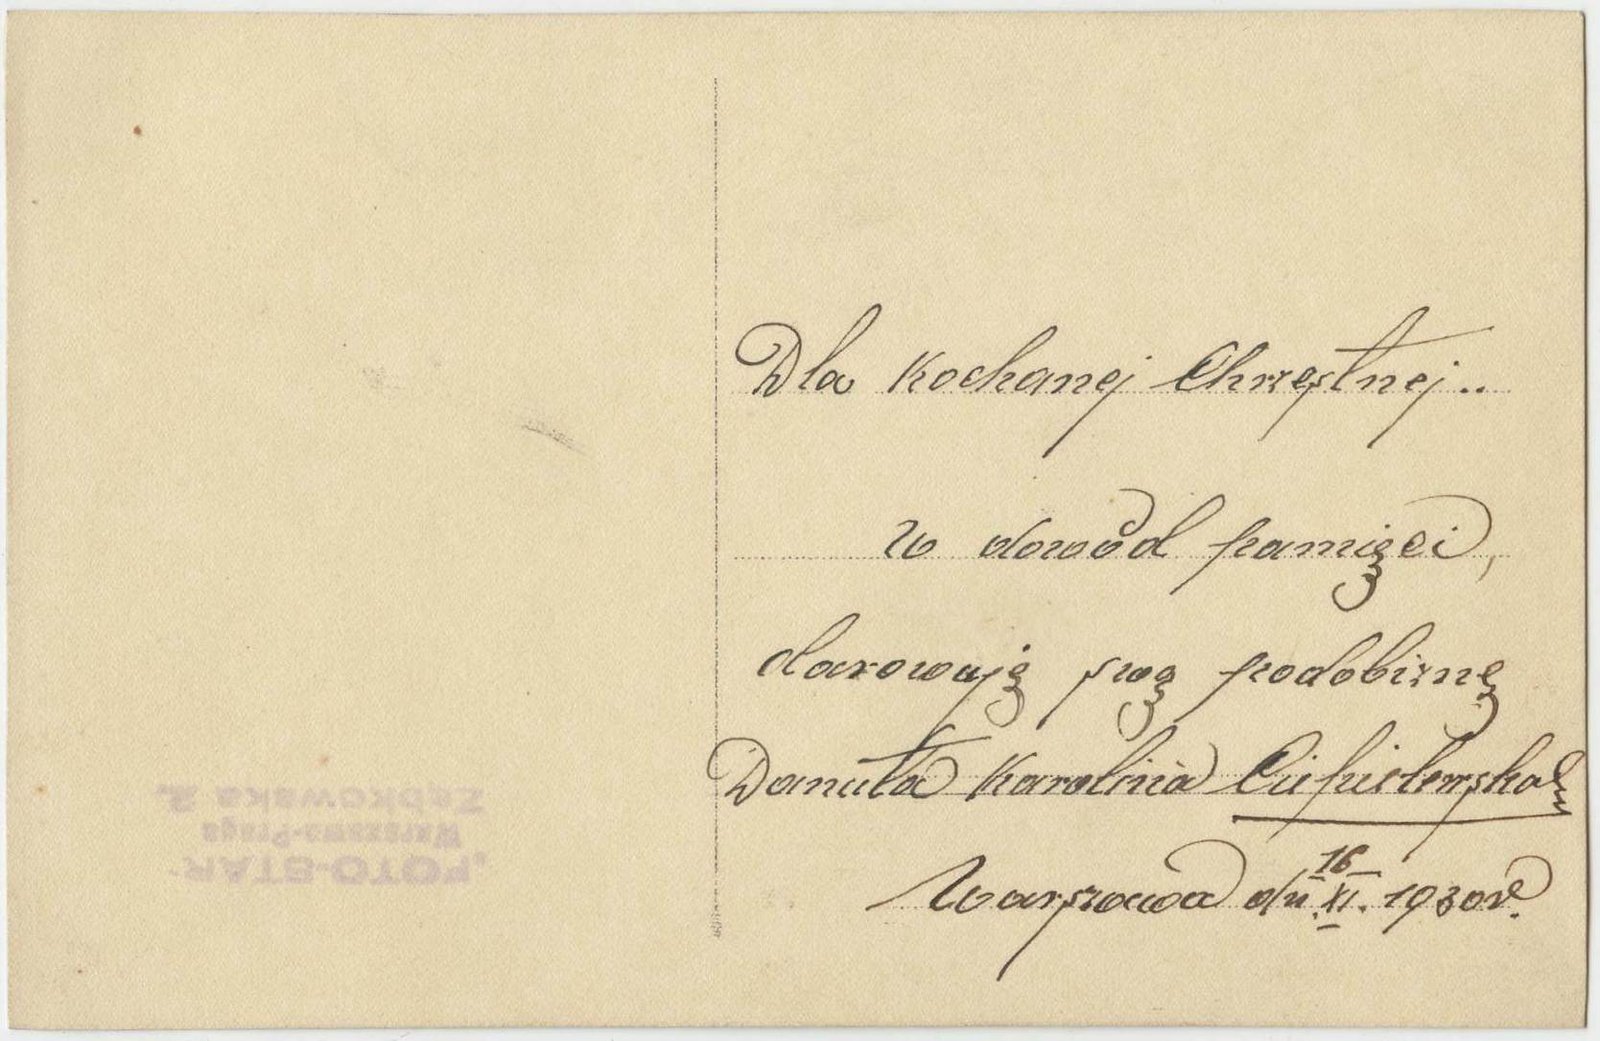 Dla Kochanej Chrzestnej..
w dowód pamięci,
darowuję swą podobiznę
Danuta Karolina
Warszawa dn. 16 XI. 1930 r.
"FOTO-STAR"
Warszawa-Praga
Ząbkowska 2.